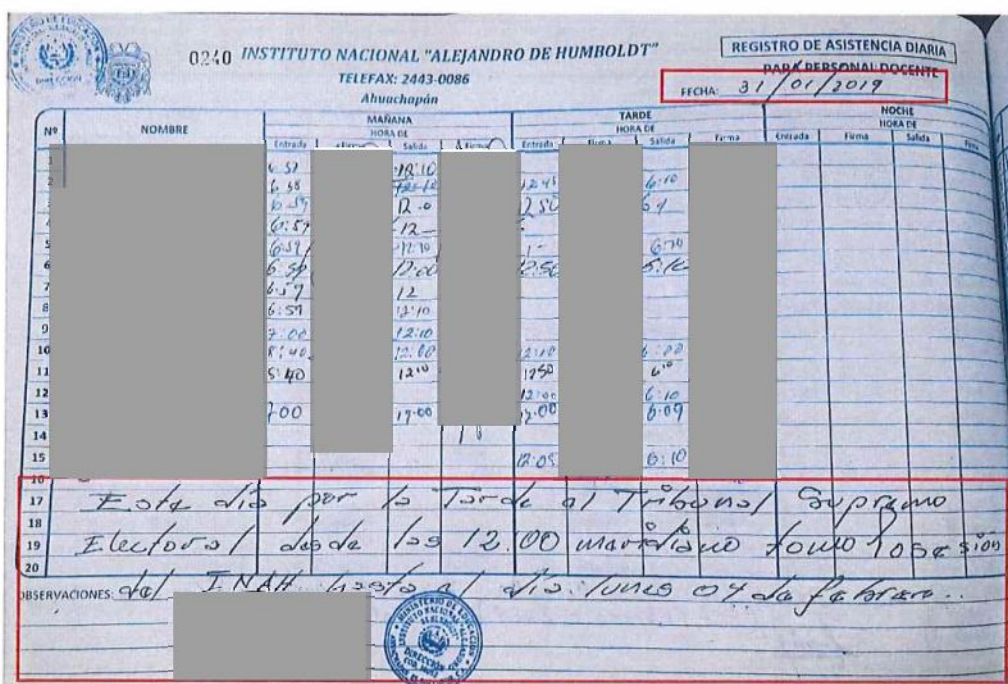 0240 INSTITUTO NACIONAL "ALEJANDRO DE HUMBOLDT"
TELEFAX: 2443-0086
Ahuachapán
REGISTRO DE ASISTENCIA DIARIA
PARA PERSONAL DOCENTE
FECHA: 31/01/2019
Nº NOMBRE MAÑANA TARDE NOCHE
HORA DE HORA DE HORA DE
Entrada Firma Salida Firma Entrada Firma Salida Firma Entrada Firma Salida Firma
1 6:57 12:10
2 6:58 12:10 12:45 6:10
6:59 12:0 12:50
6:57 12
5 6:59 12:10 1- 6:10
6 12:00 12:50
7 6:57 12
8 6:57 12:10
9 7:00 12:10
10 8:40 12:00 12:10 6:00
11 5:40 1210 1250 6:10
12 12:00 6:10
13 7:00 12:00 6:09
14
15 12:05 6:10
16
17 Este día por la Tarde el Tribunal Supremo
18
19 Electoral desde las 12:00 meridiano tomó posesión
20
OBSERVACIONES: del INAH hasta el día lunes 04 de febrero..